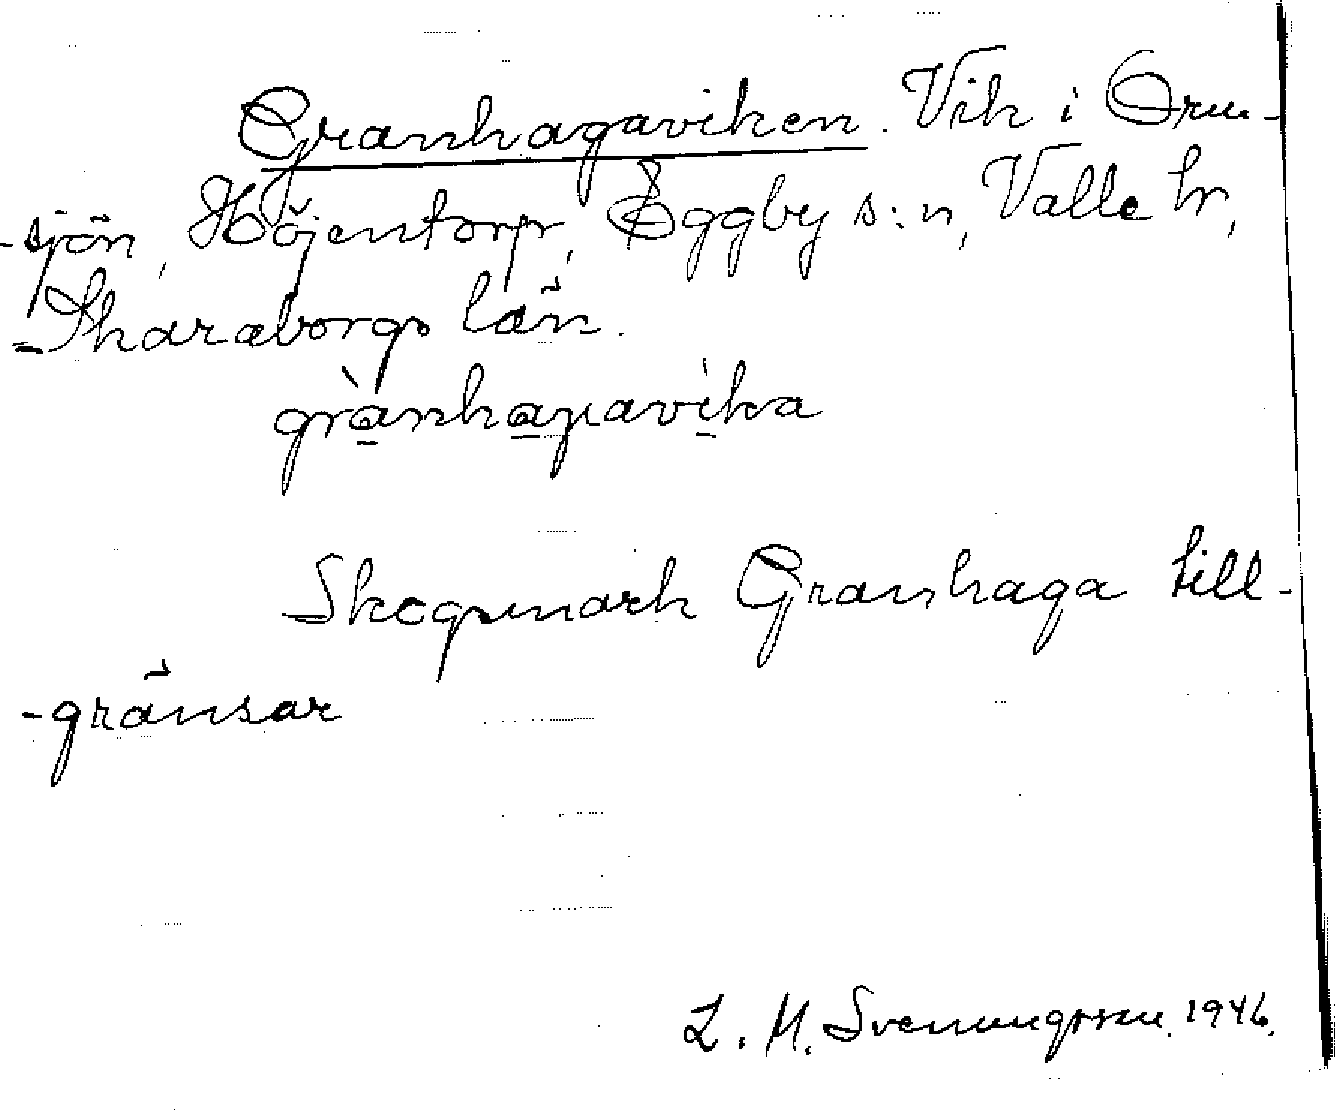 Granhagaviken. Vik i Orm-
-sjön, Höjentorp, Eggby s:n, Valle hr,
-Skaraborgs län.
grànhagavìka
Skogsmark Granhaga till-
-gränsar
L. M. Svenungsson. 1946.